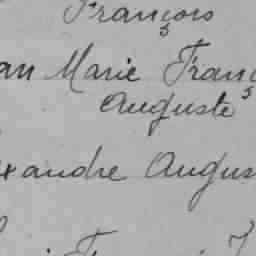 François
an Marie Franç
Auguste
xandre Augus